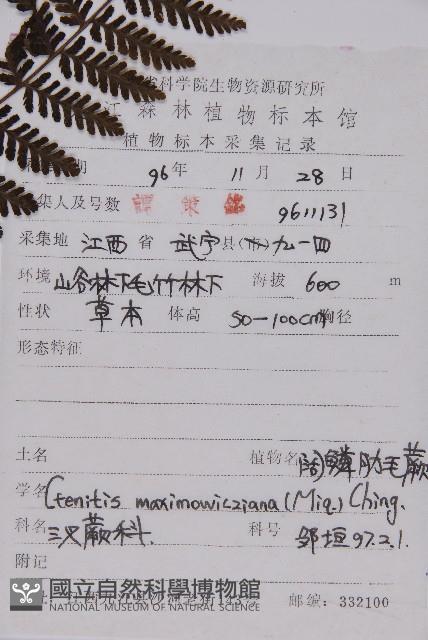 省科学院生物资源研究所
江森林植物标本馆
植物标本采集记录
期 96年 11月 28日
集人及号数 譚策銘 9611131
采集地 江西省 武宁县(市)九一四
环境 山谷林下毛竹林下 海拔 600 m
性状 草本 体高 50—100cm 胸径
形态特征
土名 植物名 阔鳞肋毛蕨
学名 Ctenitis maximowicziana (Miq.) Ching.
科名 三叉蕨科. 科号 邹垣97.2.1.
附记
國立自然科學博物館
NATIONAL MUSEUM OF NATURAL SCIENCE
邮编：332100